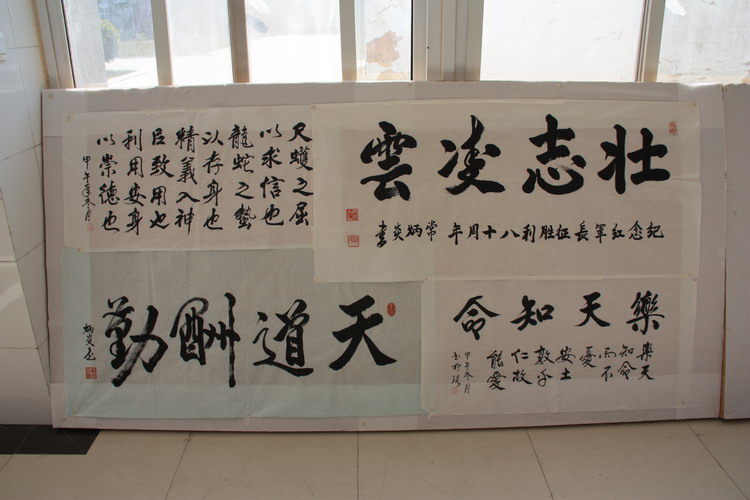 壮志凌雲
紀念红軍長征胜利八十周年 常炳英書
尺蠖之屈
以求信也
龍蛇之蟄
以存身也
精義入神
㠯致用也
利用安身
以崇德也
甲午年冬月
樂天知命
樂天
知命
而不
憂
安土
敦乎
仁故
能愛
甲午冬月
天道酬勤
炳英書